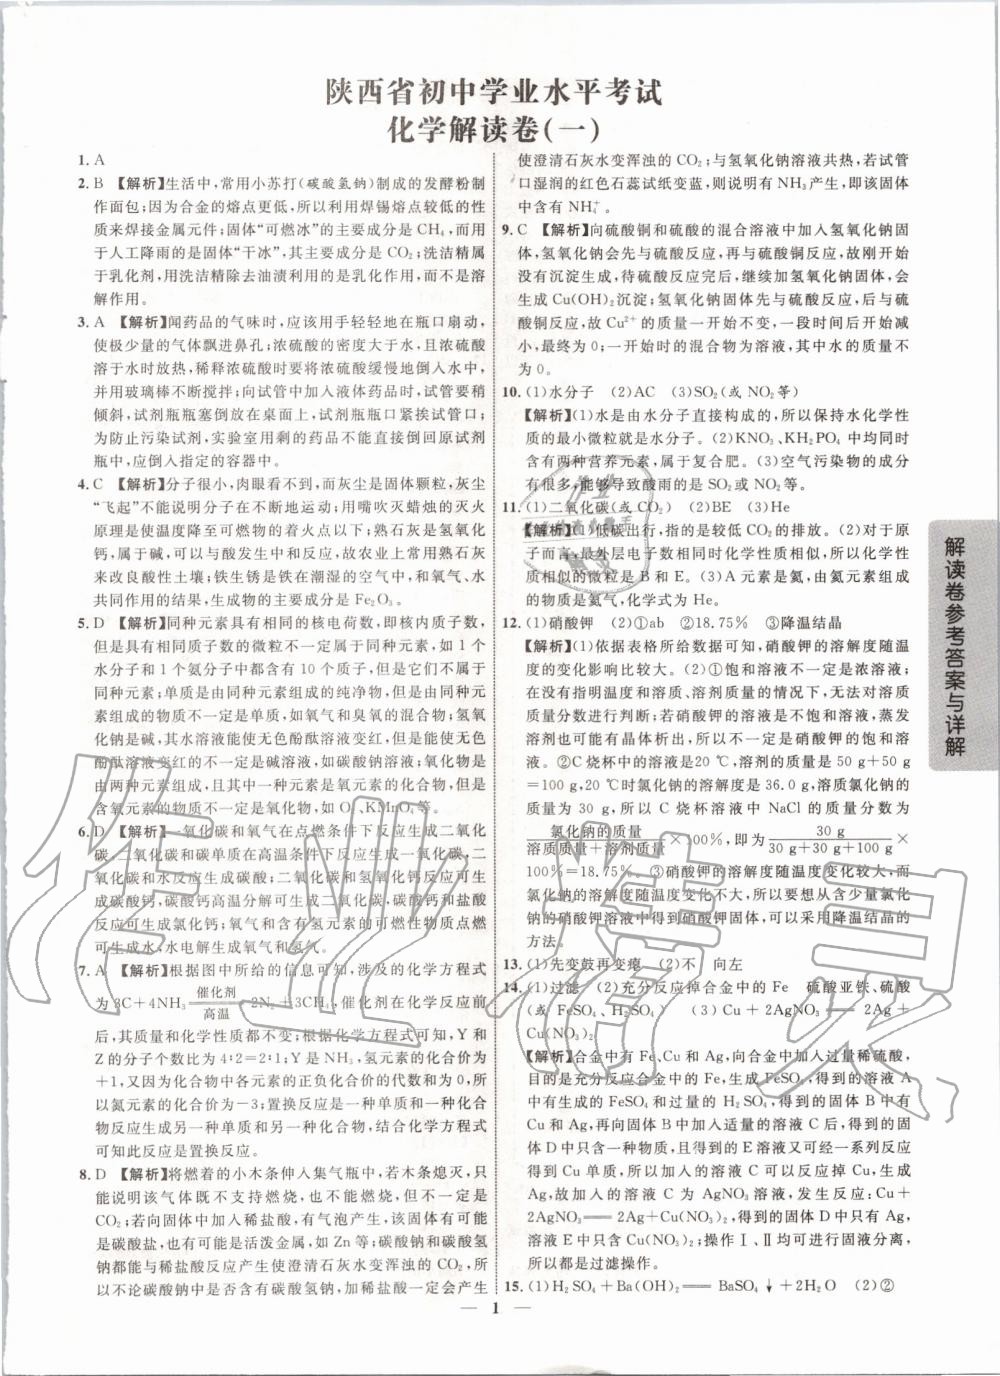 陕西省初中学业水平考试
化学解读卷(一)
1. A
2. B 【解析】生活中,常用小苏打(碳酸氢钠)制成的发酵粉制
作面包;因为合金的熔点更低,所以利用焊锡熔点较低的性
质来焊接金属元件;固体“可燃冰”的主要成分是CH₄,而用
于人工降雨的是固体“干冰”,其主要成分是CO₂;洗洁精属
于乳化剂,用洗洁精除去油渍利用的是乳化作用,而不是溶
解作用。
3. A 【解析】闻药品的气味时,应该用手轻轻地在瓶口扇动,
使极少量的气体飘进鼻孔;浓硫酸的密度大于水,且浓硫酸
溶于水时放热,稀释浓硫酸时要将浓硫酸缓慢地倒入水中,
并用玻璃棒不断搅拌;向试管中加入液体药品时,试管要稍
倾斜,试剂瓶瓶塞倒放在桌面上,试剂瓶瓶口紧挨试管口;
为防止污染试剂,实验室用剩的药品不能直接倒回原试剂
瓶中,应倒入指定的容器中。
4. C 【解析】分子很小,肉眼看不到,而灰尘是固体颗粒,灰尘
“飞起”不能说明分子在不断地运动;用嘴吹灭蜡烛的灭火
原理是使温度降至可燃物的着火点以下;熟石灰是氢氧化
钙,属于碱,可以与酸发生中和反应,故农业上常用熟石灰
来改良酸性土壤;铁生锈是铁在潮湿的空气中,和氧气、水
共同作用的结果,生成物的主要成分是Fe₂O₃。
5. D 【解析】同种元素具有相同的核电荷数,即核内质子数,
但是具有相同质子数的微粒不一定属于同种元素,如1个
水分子和1个氨分子中都含有10个质子,但是它们不属于
同种元素;单质是由同种元素组成的纯净物,但是由同种元
素组成的物质不一定是单质,如氧气和臭氧的混合物;氢氧
化钠是碱,其水溶液能使无色酚酞溶液变红,但是能使无色
酚酞溶液变红的不一定是碱溶液,如碳酸钠溶液;氧化物是
由两种元素组成的,且其中一种元素是氧元素的化合物,但是
含氧元素的物质不一定是氧化物,如O₂、KMnO₄等。
6. D 【解析】一氧化碳和氧气在点燃条件下反应生成二氧化
碳,二氧化碳和碳单质在高温条件下反应生成一氧化碳,二
氧化碳和水反应生成碳酸;二氧化碳和氢氧化钙反应生成
碳酸钙,碳酸钙高温分解可生成二氧化碳,碳酸钙和盐酸
反应可生成氯化钙;氧气和含有氢元素的可燃性物质点燃
可生成水,水电解生成氧气和氢气。
7. A 【解析】根据图中所给的信息可知,涉及的化学方程式
为3C+4NH₃ 催化剂/高温 2N₂+3CH₄,催化剂在化学反应前
后,其质量和化学性质都不变;根据化学方程式可知,Y和
Z的分子个数比为4∶2=2∶1;Y是NH₃,氢元素的化合价为
+1,又因为化合物中各元素的正负化合价的代数和为0,所
以氮元素的化合价为-3;置换反应是一种单质和一种化合
物反应生成另一种单质和另一种化合物,结合化学方程式
可知此反应是置换反应。
8. D 【解析】将燃着的小木条伸入集气瓶中,若木条熄灭,只
能说明该气体既不支持燃烧,也不能燃烧,但不一定是
CO₂;若向固体中加入稀盐酸,有气泡产生,该固体有可能
是碳酸盐,也有可能是活泼金属,如Zn等;碳酸钠和碳酸氢
钠都能与稀盐酸反应产生使澄清石灰水变浑浊的CO₂,所
以不论碳酸钠中是否含有碳酸氢钠,加稀盐酸一定会产生
使澄清石灰水变浑浊的CO₂;与氢氧化钠溶液共热,若试管
口湿润的红色石蕊试纸变蓝,则说明有NH₃产生,即该固体
中含有NH₄⁺。
9. C 【解析】向硫酸铜和硫酸的混合溶液中加入氢氧化钠固
体,氢氧化钠会先与硫酸反应,再与硫酸铜反应,故刚开始
没有沉淀生成,待硫酸反应完后,继续加氢氧化钠固体,会
生成Cu(OH)₂沉淀;氢氧化钠固体先与硫酸反应,后与硫
酸铜反应,故Cu²⁺的质量一开始不变,一段时间后开始减
小,最终为0;一开始时的混合物为溶液,其中水的质量不
为0。
10. (1)水分子 (2)AC (3)SO₂(或NO₂等)
【解析】(1)水是由水分子直接构成的,所以保持水化学性
质的最小微粒就是水分子。(2)KNO₃、KH₂PO₄中均同时
含有两种营养元素,属于复合肥。(3)空气污染物的成分
有很多,能够导致酸雨的是SO₂或NO₂等。
11. (1)二氧化碳(或CO₂) (2)BE (3)He
【解析】(1)低碳出行,指的是较低CO₂的排放。(2)对于原
子而言,最外层电子数相同时化学性质相似,所以化学性
质相似的微粒是B和E。(3)A元素是氦,由氦元素组成
的物质是氦气,化学式为He。
12. (1)硝酸钾 (2)①ab ②18.75% ③降温结晶
【解析】(1)依据表格所给数据可知,硝酸钾的溶解度随温
度的变化影响比较大。(2)①饱和溶液不一定是浓溶液;
在没有指明温度和溶质、溶剂质量的情况下,无法对溶质
质量分数进行判断;若硝酸钾的溶液是不饱和溶液,蒸发
溶剂也可能有晶体析出,所以不一定是硝酸钾的饱和溶
液。②C烧杯中的溶液是20 ℃,溶剂的质量是50 g+50 g
=100 g,20 ℃时氯化钠的溶解度是36.0 g,溶质氯化钠的
质量为30 g,所以C烧杯溶液中NaCl的质量分数为
氯化钠的质量/溶质质量+溶剂质量×100%,即为30 g/30 g+30 g+100 g×
100%=18.75%。③硝酸钾的溶解度随温度变化较大,而
氯化钠的溶解度随温度变化不大,所以要想从含少量氯化
钠的硝酸钾溶液中得到硝酸钾固体,可以采用降温结晶的
方法。
13. (1)先变鼓再变瘪 (2)不 向左
14. (1)过滤 (2)充分反应掉合金中的Fe 硫酸亚铁、硫酸
(或FeSO₄、H₂SO₄) (3)Cu+2AgNO₃══2Ag+
Cu(NO₃)₂
【解析】合金中有Fe、Cu和Ag,向合金中加入过量稀硫酸,
目的是充分反应合金中的Fe,生成FeSO₄,得到的溶液A
中有FeSO₄和过量的H₂SO₄,得到的固体B中含有Cu
和Ag,再向固体B中加入适量的溶液C后,得到的固
体D中只含有一种物质,且得到的E溶液又可经一系列反应
得到Cu单质,所以加入的溶液C可以反应掉Cu,生成
Ag,故加入的溶液C为AgNO₃溶液,发生反应:Cu+
2AgNO₃══2Ag+Cu(NO₃)₂,得到的固体D中只有Ag,
溶液E中只含有Cu(NO₃)₂;操作Ⅰ、Ⅱ均可进行固液分离,
所以都是过滤操作。
15. (1)H₂SO₄+Ba(OH)₂══BaSO₄↓+2H₂O (2)②
解读卷参考答案与详解
— 1 —
作业精灵